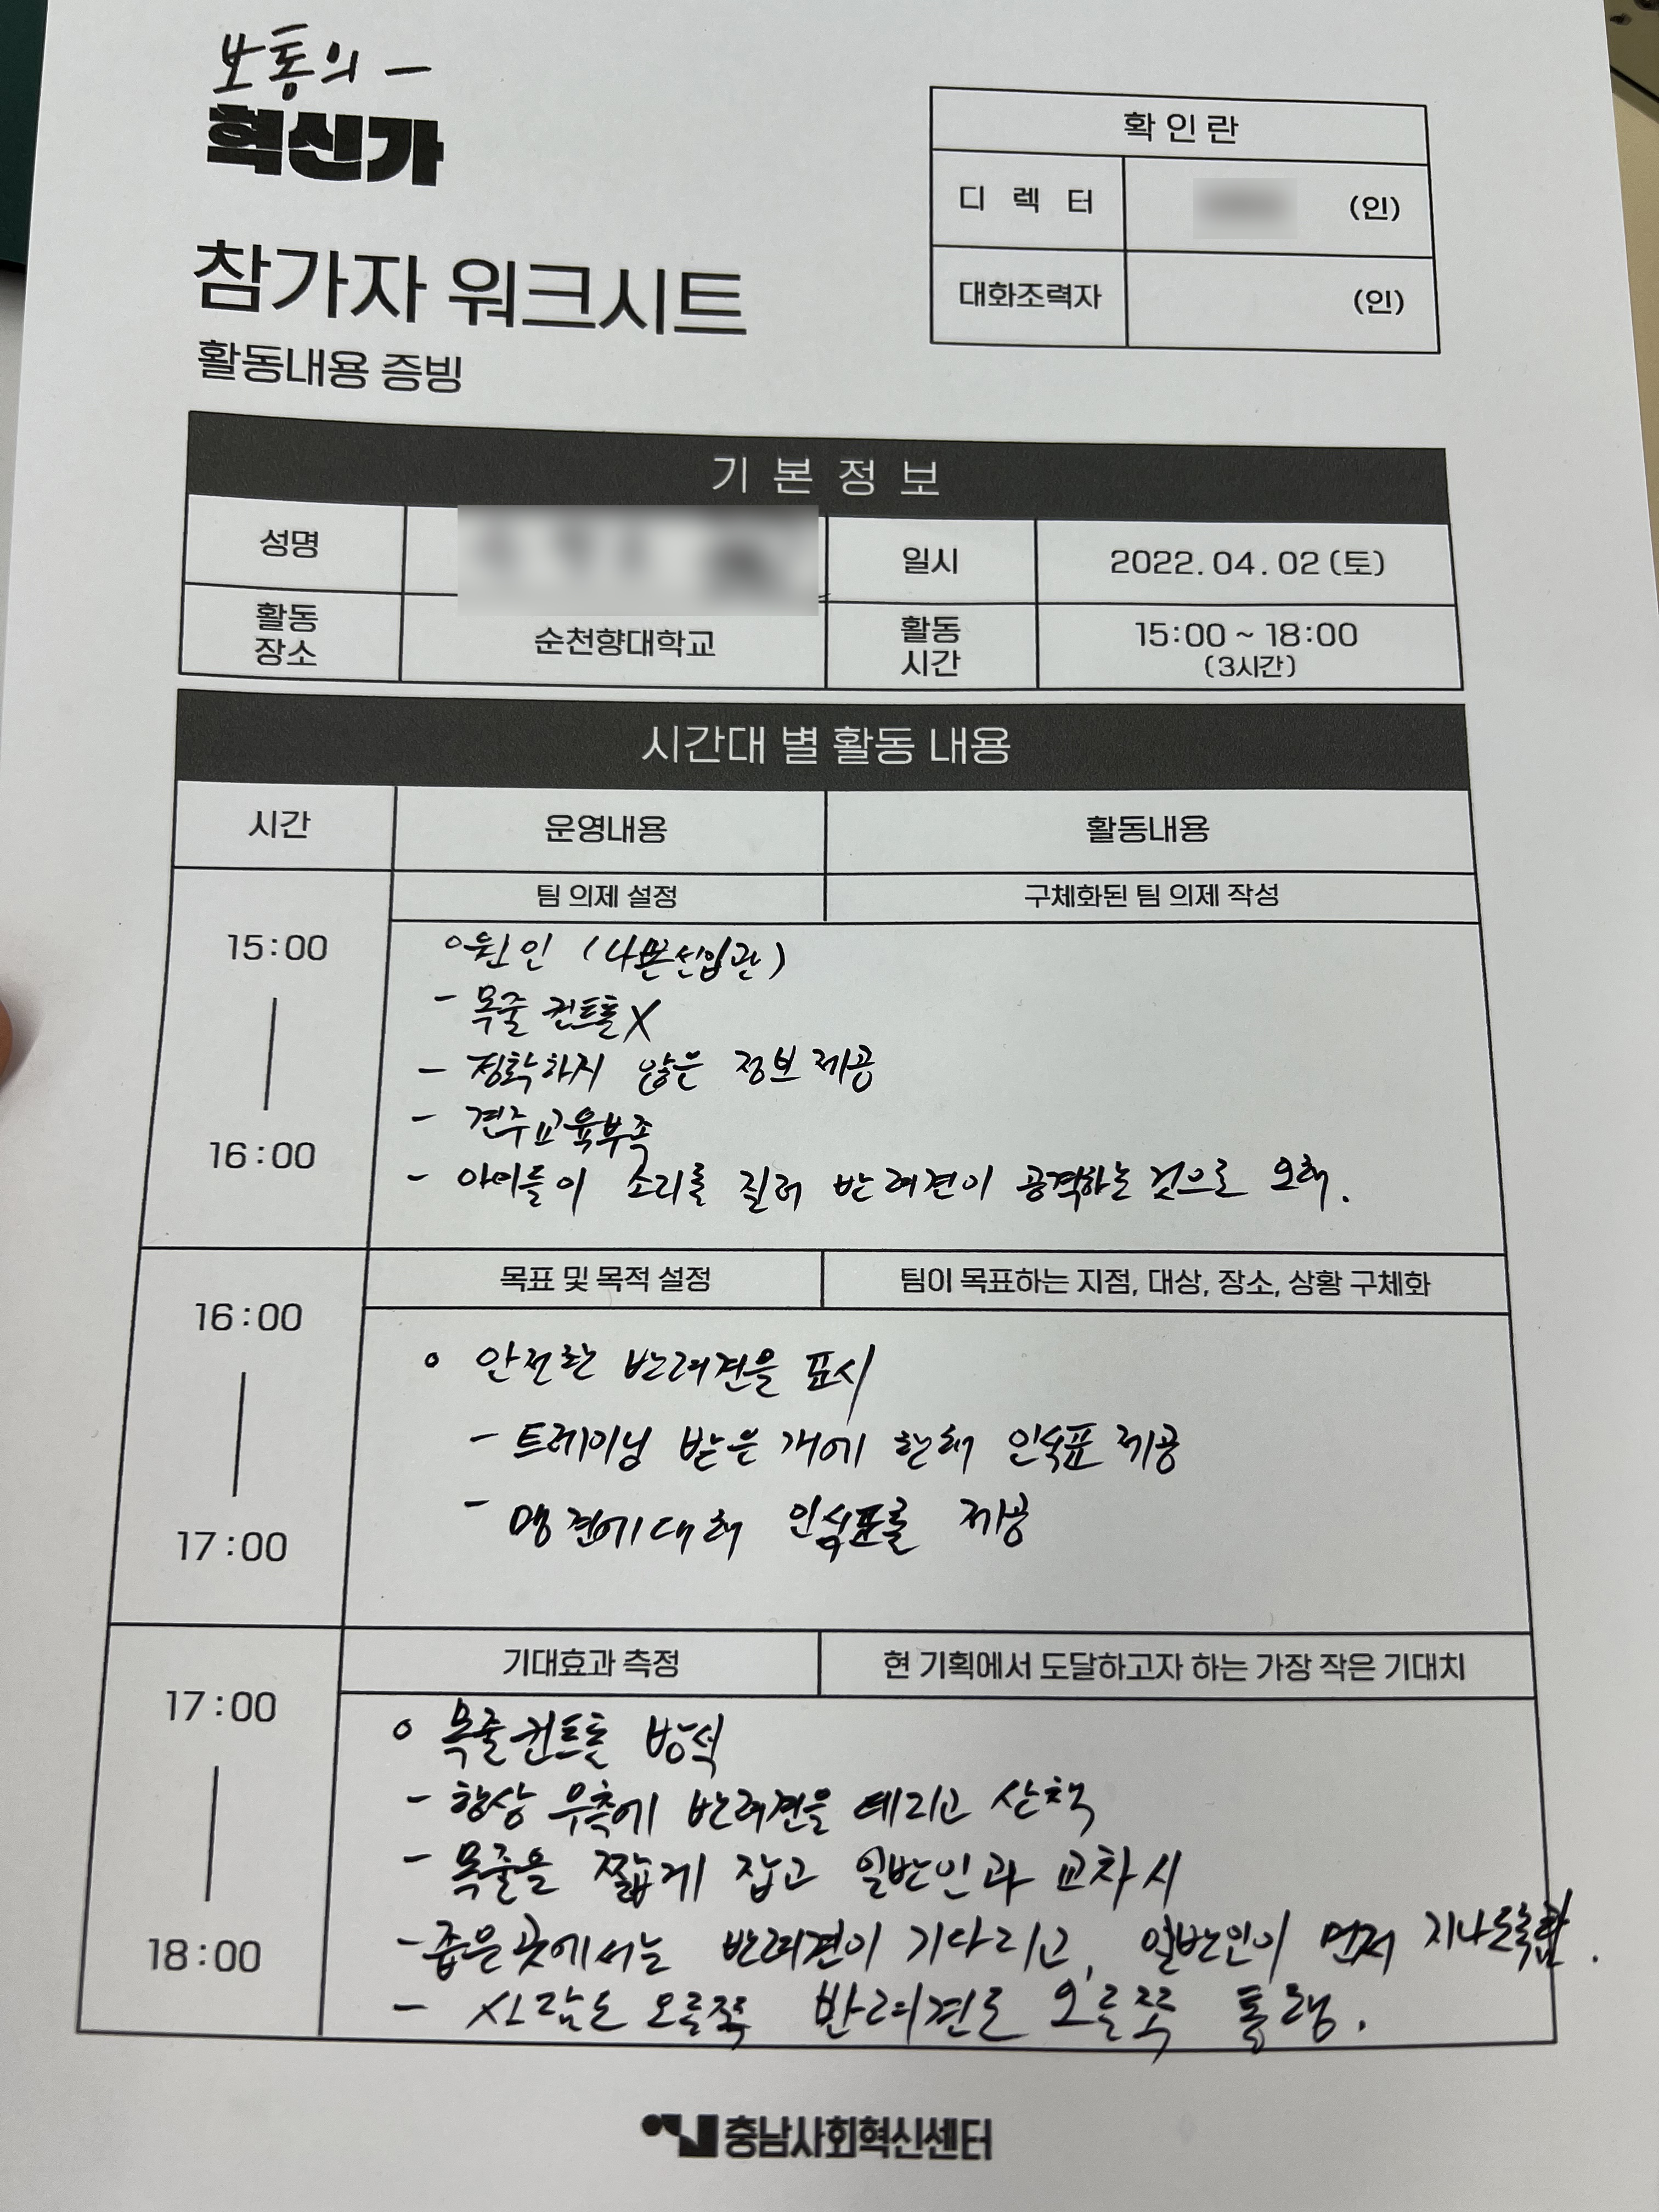 보통의 –
혁신가
확인란
디렉터 (인)
대화조력자 (인)
참가자 워크시트
활동내용 증빙
기본정보
성명 일시 2022.04.02(토)
활동 장소 순천향대학교 활동 시간 15:00 ~ 18:00 (3시간)
시간대 별 활동 내용
시간 운영내용 활동내용
팀 의제 설정 구체화된 팀 의제 작성
15:00 | 16:00
◦원인 (나쁜선입관)
- 목줄 컨트롤X
- 정확하지 않은 정보 제공
- 견주교육부족
- 아이들이 소리를 질러 반려견이 공격하는 것으로 오해.
목표 및 목적 설정 팀이 목표하는 지점, 대상, 장소, 상황 구체화
16:00 | 17:00
◦ 안전한 반려견을 표시
- 트레이닝 받은 개에 한해 인식표 제공
- 맹견에 대해 인식표를 제공
기대효과 측정 현 기획에서 도달하고자 하는 가장 작은 기대치
17:00 | 18:00
◦ 목줄컨트롤 방식
- 항상 우측에 반려견을 데리고 산책
- 목줄을 짧게 잡고 일반인과 교차시
- 좁은곳에서는 반려견이 기다리고, 일반인이 먼저 지나도록함.
- 사람도 오른쪽 반려견도 오른쪽 통행.
충남사회혁신센터